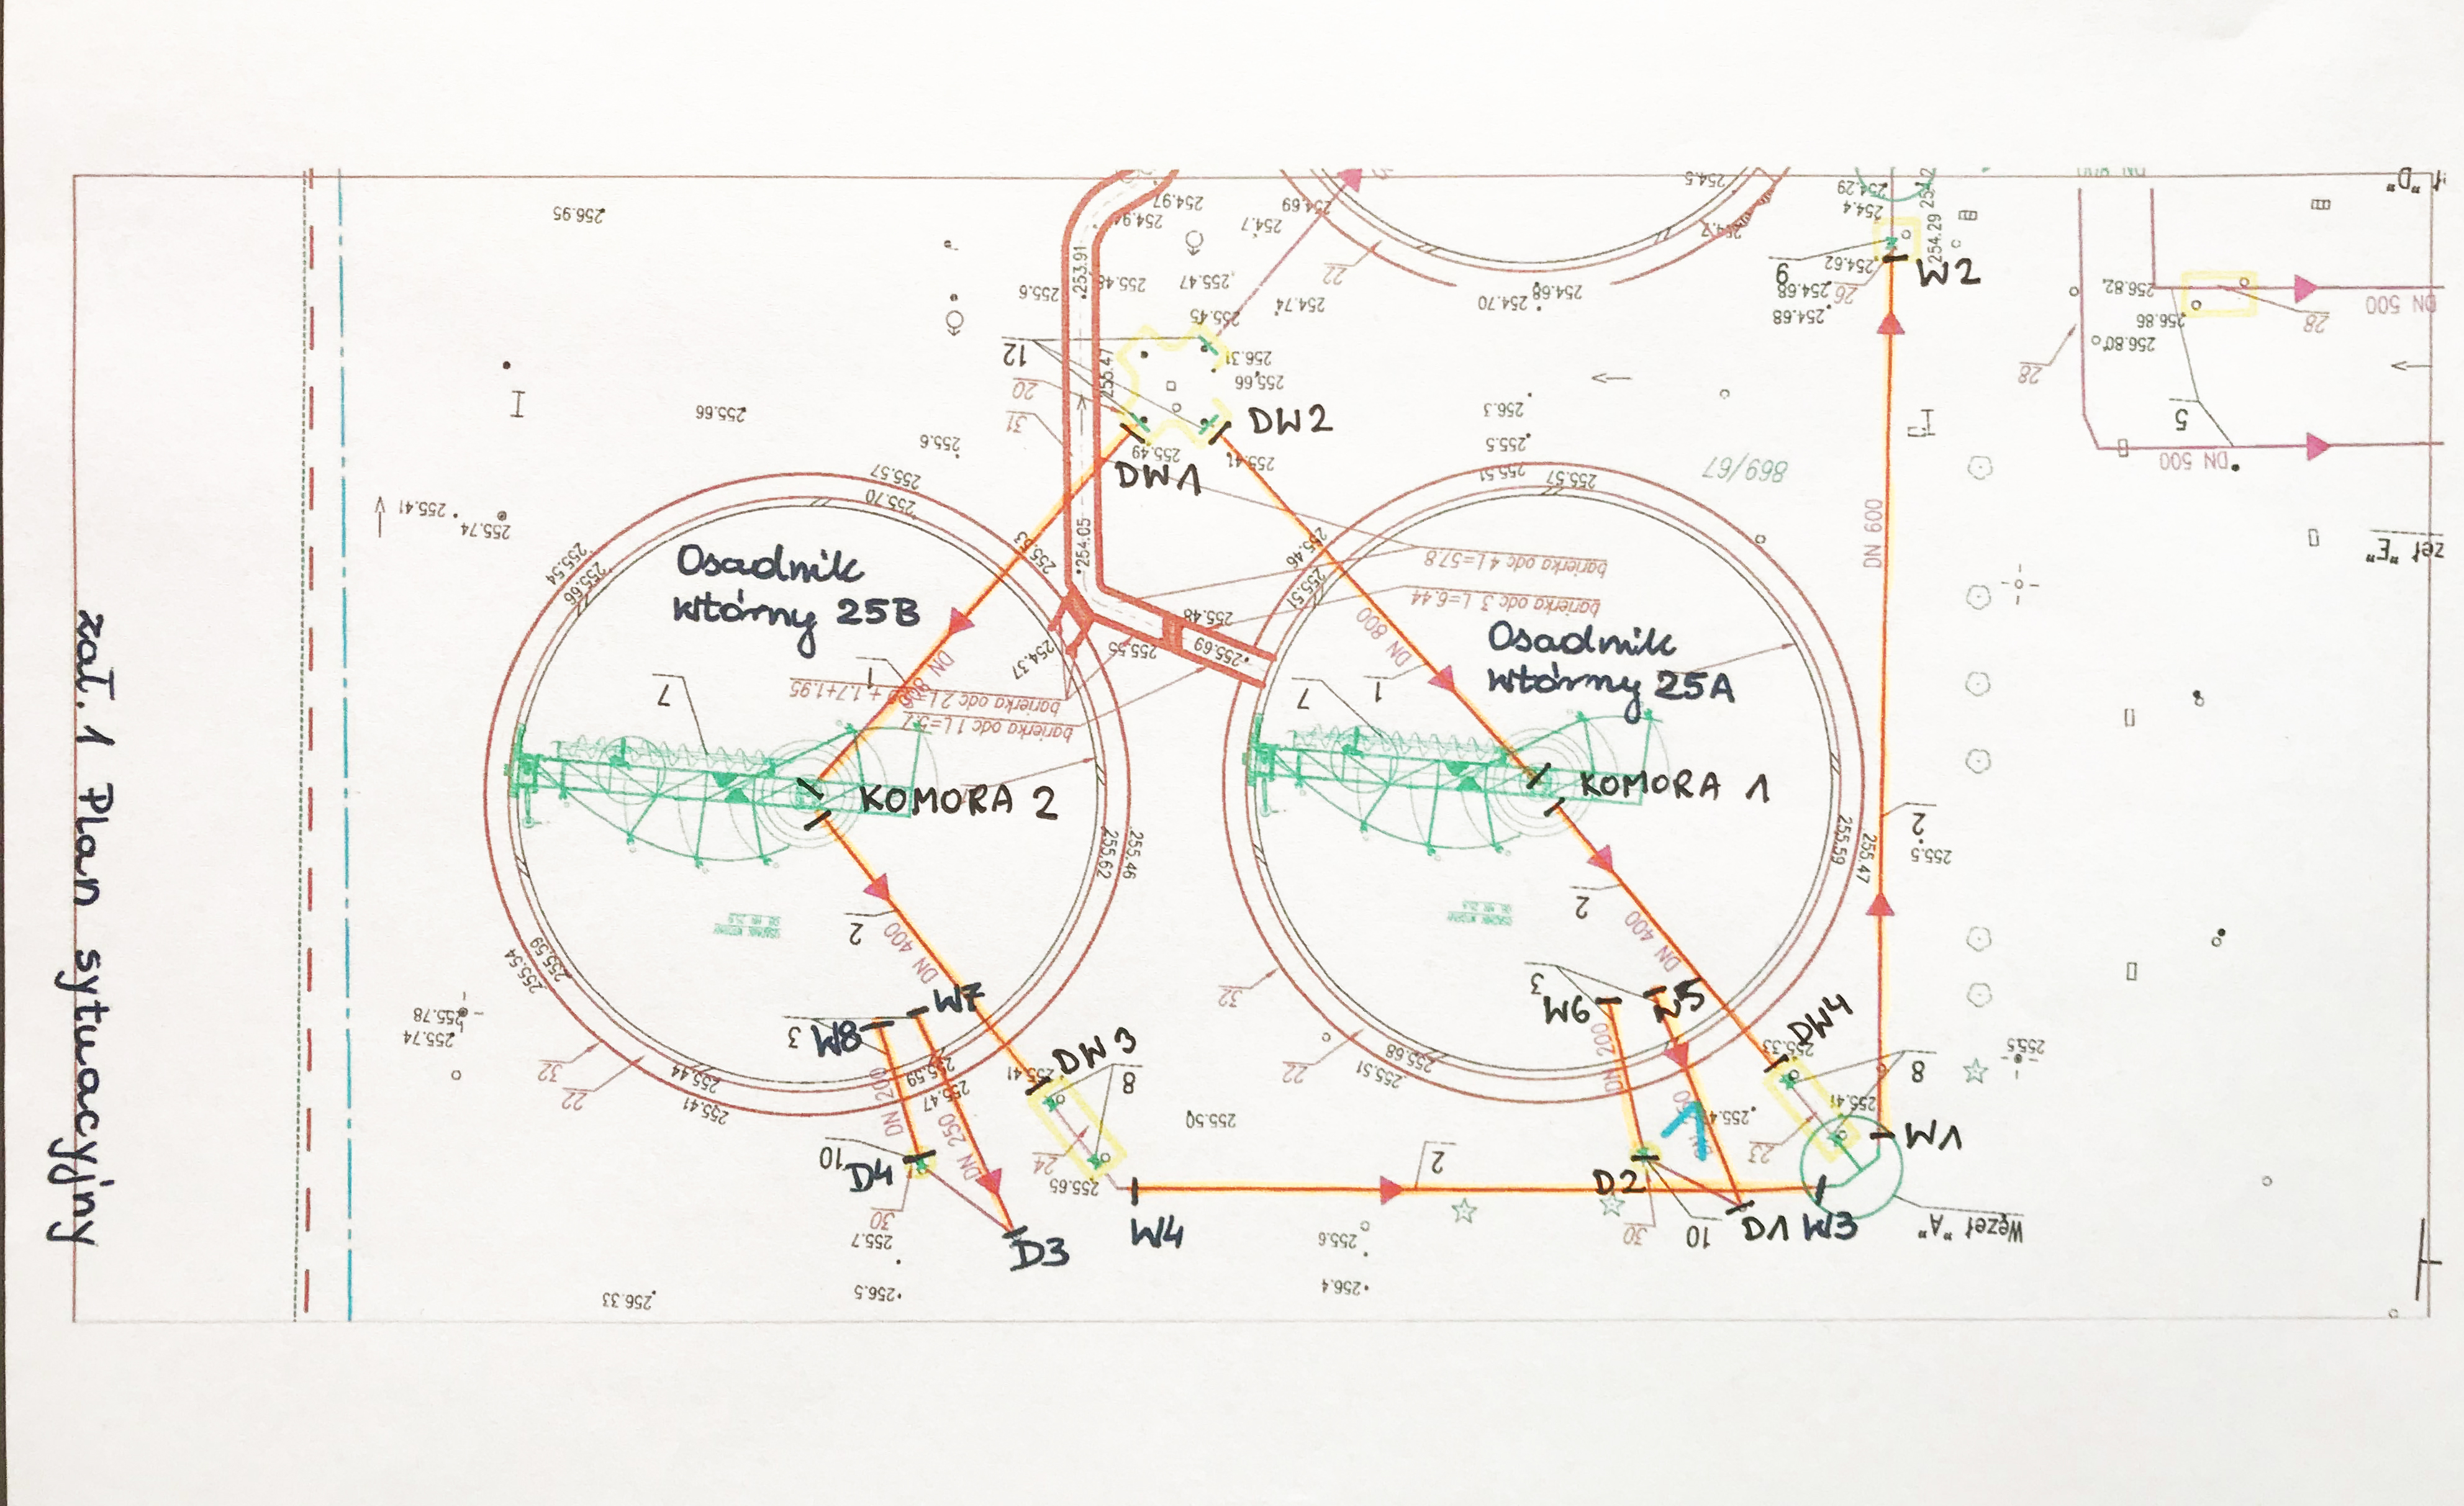 zał. 1 Plan sytuacyjny
256.95
254.97
254.94
254.69
254.7
254.5
254.7
254.29
254.4
254.29
254.62
9
26
W2
254.68
254.68
"D"
256.82
256.86
256.80
28
DN 500
28
5
DN 500
zeł "E"
253.91
255.6
255.48
255.47
255.45
254.74
22
254.70
254.68
12
20
31
255.47
256.31
255.66
256.3
255.5
DW2
255.49
255.41
DW1
255.66
255.6
255.41
255.74
255.57
255.70
255.51
255.57
869/67
DN 600
255.54
255.66
255.53
254.05
255.46
255.51
Osadnik
wtórny 25B
barierka odc 4 L=57.8
barierka odc 3 L=6.44
DN 800
255.48
255.69
255.55
254.37
Osadnik
wtórny 25A
1
1
7
7
barierka odc 2 L=
+1.7+1.95
barierka odc 1 L=5.7
KOMORA 2
KOMORA 1
255.62
255.46
255.59
255.47
2
255.5
2
DN 400
2
DN 400
255.59
255.54
32
255.78
255.74
3
W8
W7
3
W6
W5
DW3
DW4
255.33
255.5
32
22
255.44
255.41
255.59
255.47
255.41
8
22
255.68
255.51
8
DN 200
DN 250
DN 200
255.50
255.41
10
D4
30
255.7
24
255.65
2
23
W1
D2
30
10
D1
W3
Węzeł "A"
D3
W4
255.6
256.33
256.5
256.4